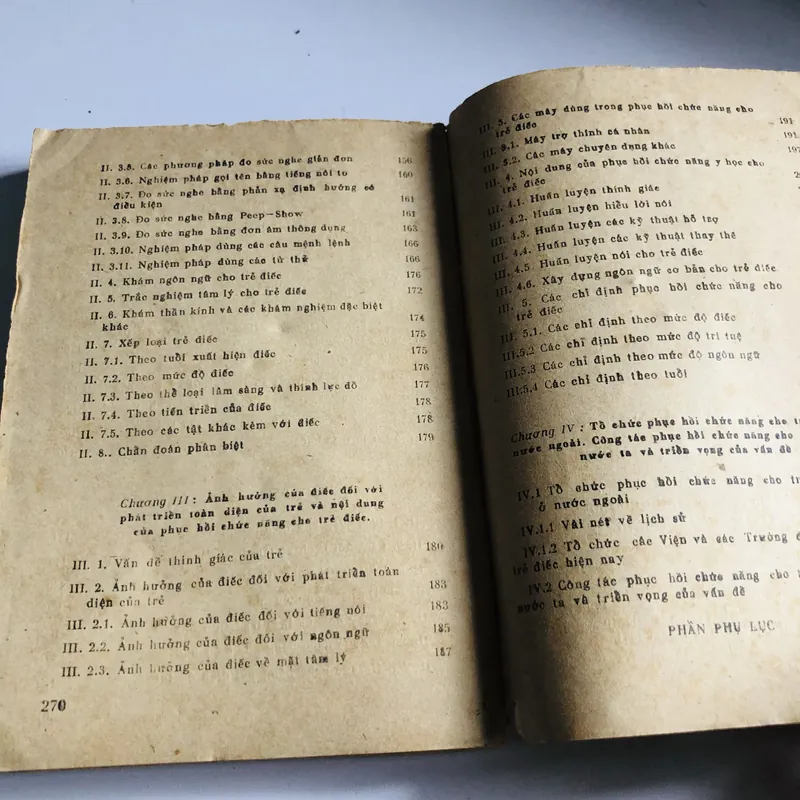 II. 3.5. Các phương pháp đo sức nghe giản đơn 156
II. 3.6. Nghiệm pháp gọi tên bằng tiếng nói to 160
II. 3.7. Đo sức nghe bằng phản xạ định hướng có
điều kiện 161
II. 3.8. Đo sức nghe bằng Peep-Show 161
II. 3.9. Đo sức nghe bằng đơn âm thông dụng 163
II. 3.10. Nghiệm pháp dùng các câu mệnh lệnh 166
II. 3.11. Nghiệm pháp dùng các từ thử 166
II. 4. Khám ngôn ngữ cho trẻ điếc 176
II. 5. Trắc nghiệm tâm lý cho trẻ điếc 172
II. 6. Khám thần kinh và các khám nghiệm đặc biệt
khác 174
II. 7. Xếp loại trẻ điếc 175
II. 7.1. Theo tuổi xuất hiện điếc 175
II. 7.2. Theo mức độ điếc 176
II. 7.3. Theo thể loại lâm sàng và thính lực đồ 177
II. 7.4. Theo tiến triển của điếc 178
II. 7.5. Theo các tật khác kèm với điếc 178
II. 8.. Chẩn đoán phân biệt 179
Chương III : Ảnh hưởng của điếc đối với
phát triển toàn diện của trẻ và nội dung
của phục hồi chức năng cho trẻ điếc.
III. 1. Vấn đề thính giác của trẻ 180
III. 2. Ảnh hưởng của điếc đối với phát triển toàn
diện của trẻ 183
III. 2.1. Ảnh hưởng của điếc đối với tiếng nói 183
III. 2.2. Ảnh hưởng của điếc đối với ngôn ngữ 185
III. 2.3. Ảnh hưởng của điếc về mặt tâm lý 187
270
III. 3. Các máy dùng trong phục hồi chức năng cho
trẻ điếc 191
III. 3.1. Máy trợ thính cá nhân 191
III. 3.2. Các máy chuyên dụng khác
III. 4. Nội dung của phục hồi chức năng y học cho
trẻ điếc
III. 4.1. Huấn luyện thính giác
III. 4.2. Huấn luyện hiểu lời nói
III. 4.3. Huấn luyện các kỹ thuật hỗ trợ
III. 4.4. Huấn luyện các kỹ thuật thay thế
III. 4.5 Huấn luyện nói cho trẻ điếc
III. 4.6. Xây dựng ngôn ngữ cơ bản cho trẻ điếc
III. 5. Các chỉ định phục hồi chức năng cho
trẻ điếc
III. 5.1. Các chỉ định theo mức độ điếc
III.5.2 Các chỉ định theo mức độ trí tuệ
III.5.3 Các chỉ định theo mức độ ngôn ngữ
III.5.4 Các chỉ định theo tuổi
Chương IV : Tổ chức phục hồi chức năng cho
nước ngoài. Công tác phục hồi chức năng cho
nước ta và triển vọng của vấn đề
IV.1 Tổ chức phục hồi chức năng cho
ở nước ngoài
IV.1.1 Vài nét về lịch sử
IV.1.2 Tổ chức các Viện và các Trường
trẻ điếc hiện nay
IV.2 Công tác phục hồi chức năng cho
nước ta và triển vọng của vấn đề
PHẦN PHỤ LỤC